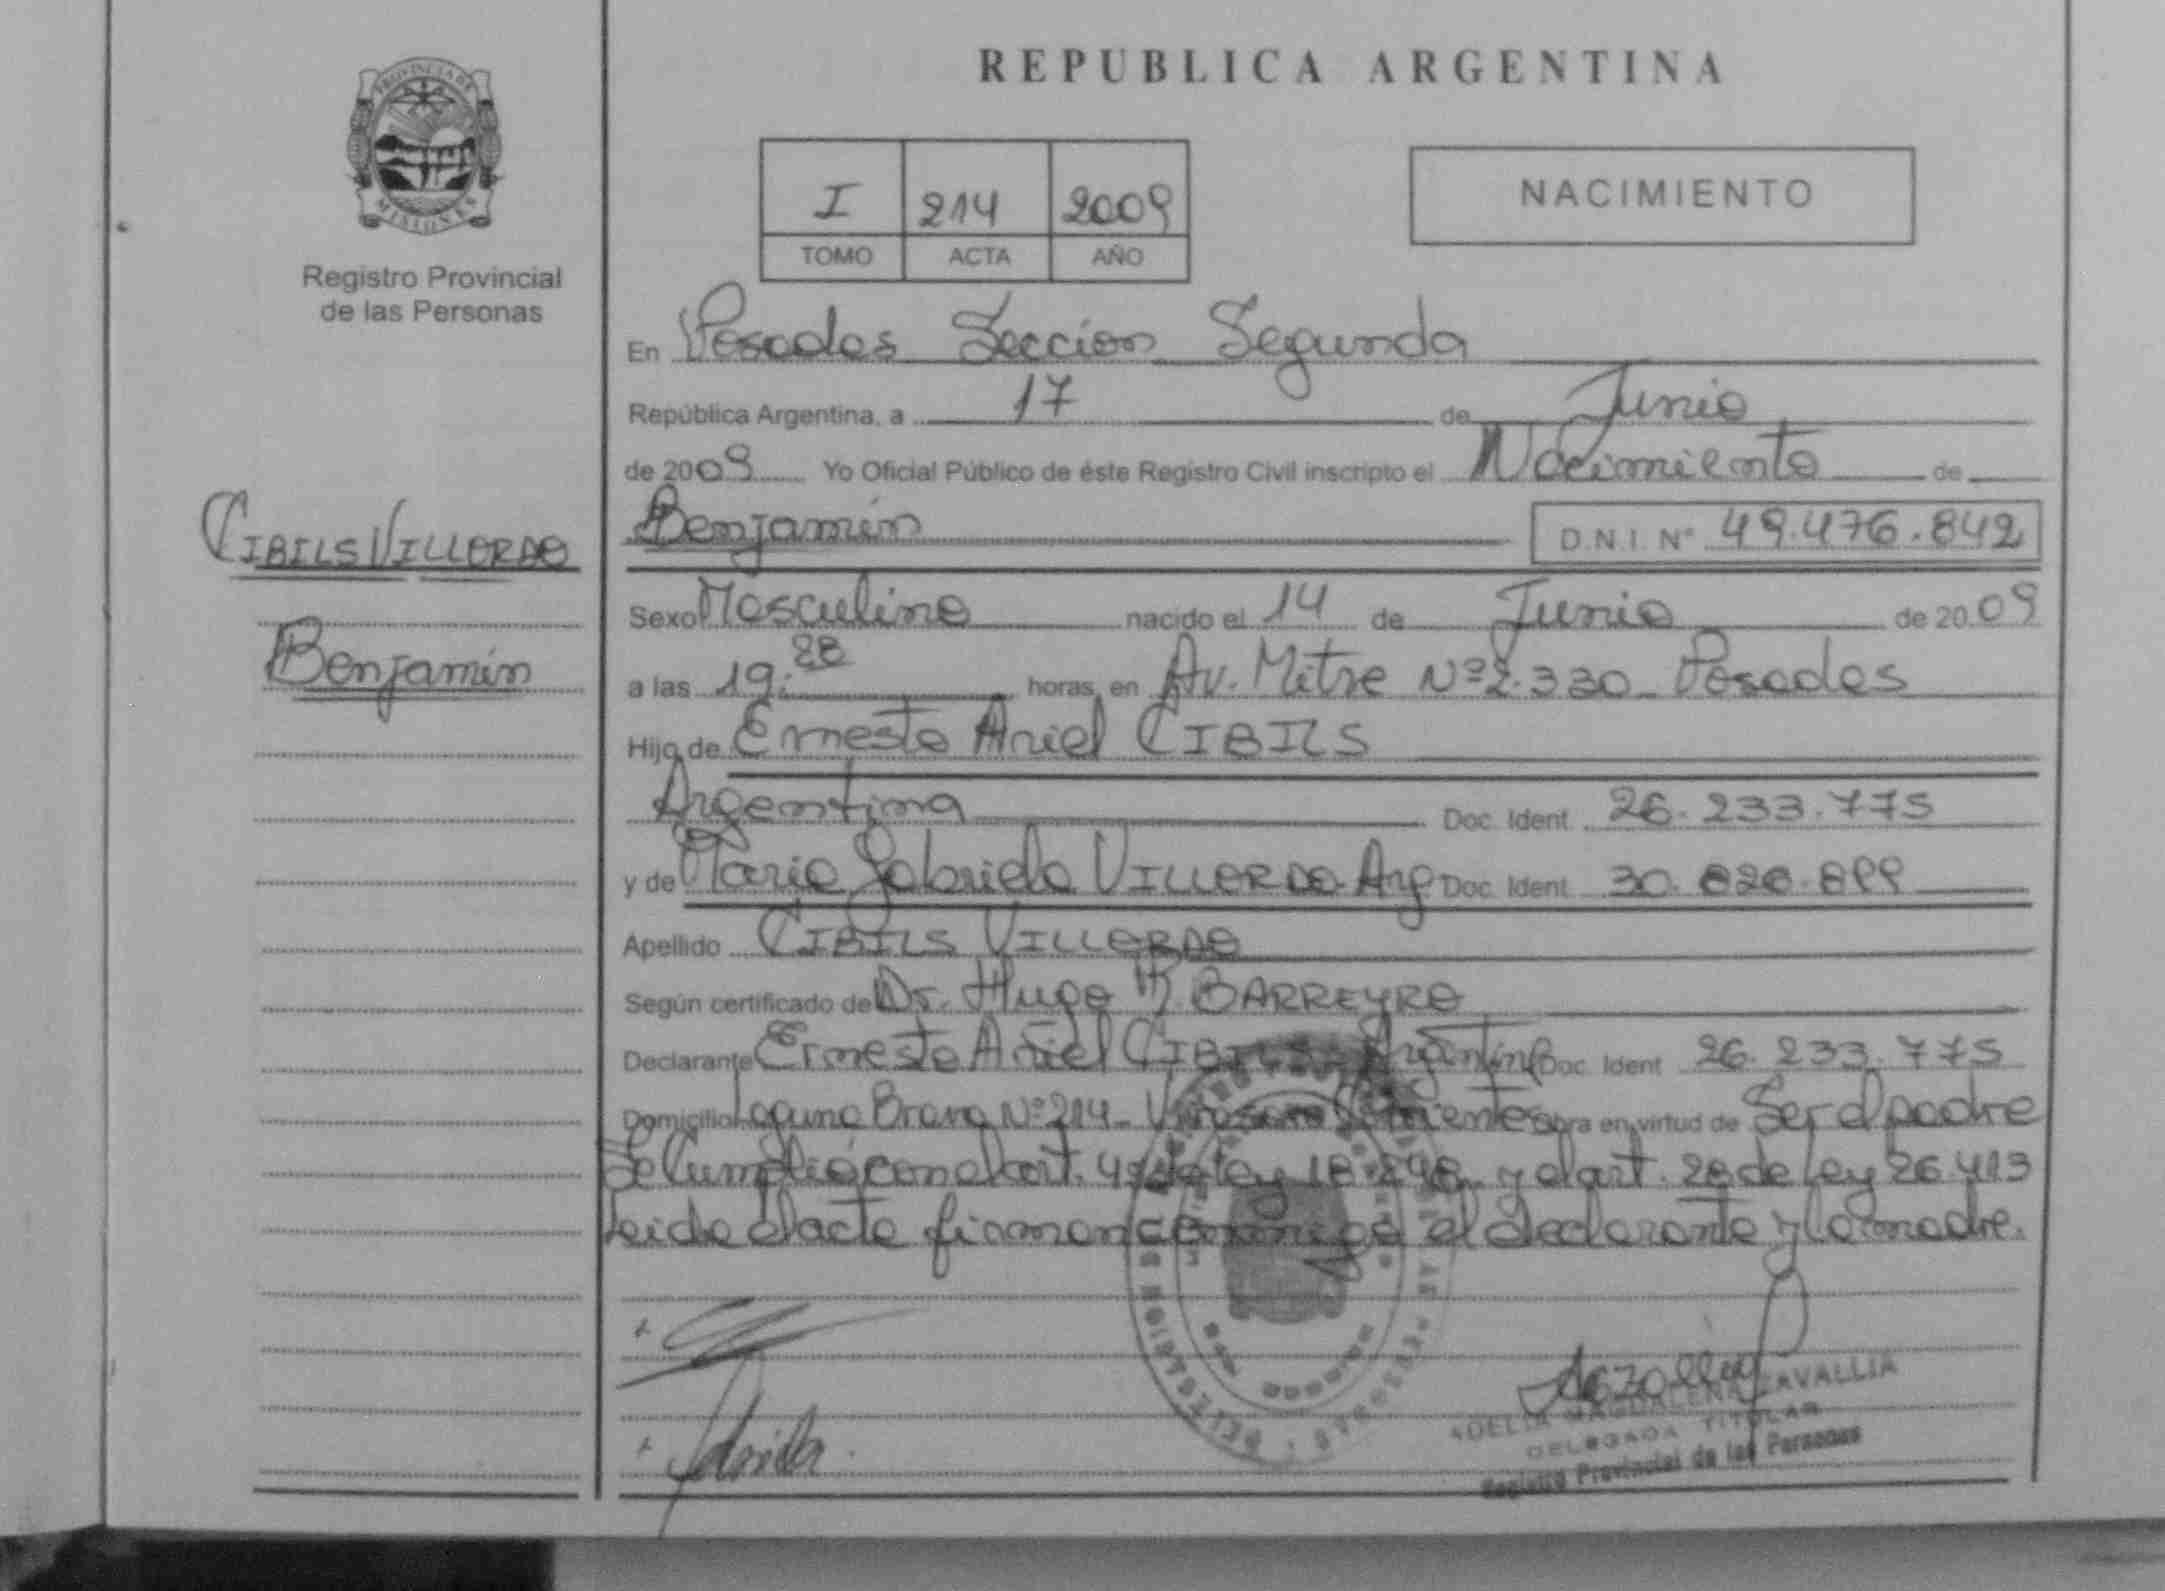 PROVINCIA DE
MISIONES
Registro Provincial
de las Personas
CIBILS VILLORDO
Benjamín
REPUBLICA ARGENTINA
I 214 2009
TOMO ACTA AÑO
NACIMIENTO
En Posadas Sección Segunda
República Argentina, a 17 de Junio
de 2009 Yo Oficial Público de éste Registro Civil inscripto el Nacimiento de
Benjamín D.N.I. N° 49.476.842
Sexo Masculino nacido el 14 de Junio de 2009
a las 19:28 horas, en Av. Mitre Nº 2.330 Posadas
Hijo de Ernesto Ariel CIBILS
Argentina Doc. Ident. 26.233.775
y de María Gabriela VILLORDO Arg Doc. Ident. 30.826.899
Apellido CIBILS VILLORDO
Según certificado de Dr. Hugo R. BARREYRO
Declarante Ernesto Ariel CIBILS Argentino Doc. Ident 26.233.775
Domicilio Laguna Brava Nº 214 Virasoro Corrientes obra en virtud de Ser el padre
Se Cumplió con el art. 4º de ley 18.248 y el art. 28 de ley 26.413
Leida el acta firman conmigo el declarante y la madre.
ADELIA MAGDALENA ZAVALLIA
DELEGADA TITULAR
Registro Provincial de las Personas